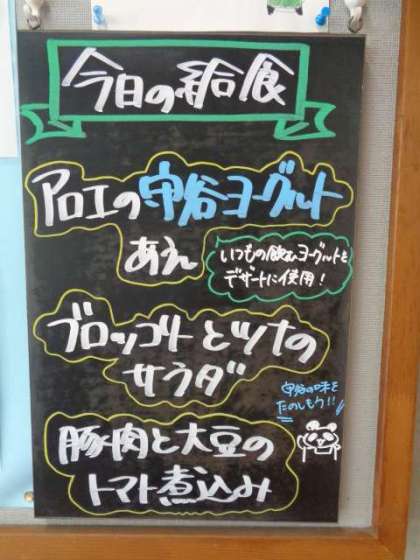 今日の給食
アロエの守谷ヨーグルト
あえ
いつもの飲むヨーグルトを
デザートに使用!
ブロッコリーとツナの
サラダ
守谷の味を
たのしもう!!
豚肉と大豆の
トマト煮込み